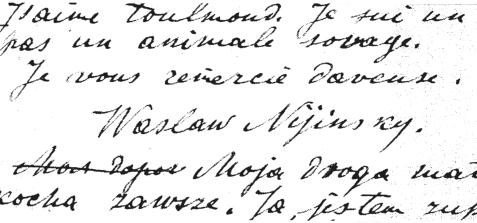 J'saime toulmond. Je sui un
pas un animale sovage.
Je vous remercié davense.
Waslaw Nijinsky.
Moja droga mat
kocha zawsze. Ja jestem zup